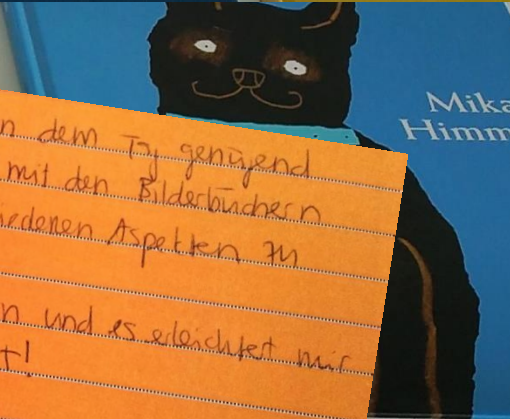 Mika
Himm
n dem Ty genügend
mit den Bilderbüchern
iedenen Aspekten zu
n und es erleichtert mir
t!